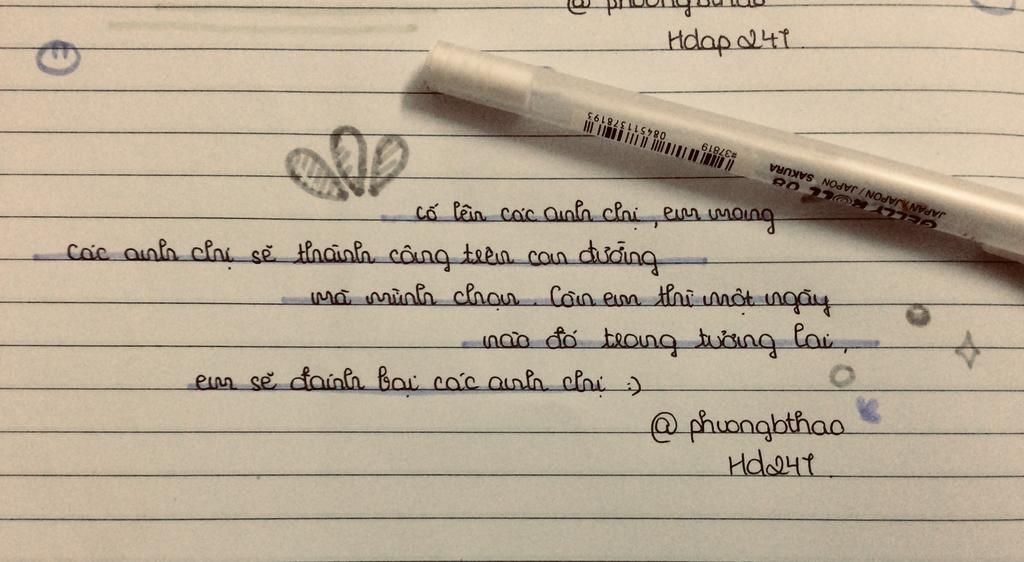 @ phuongbthao
Hdap 247
#37819
084511378193
GELLY ROLL 08
JAPAN/JAPON / JAPON SAKURA
Cố lên các anh chị, em mong
các anh chị sẽ thành công trên con đường
mà mình chọn. Còn em thì một ngày
nào đó trong tương lai,
em sẽ đánh bại các anh chị :)
@ phuongbthao
Hd247